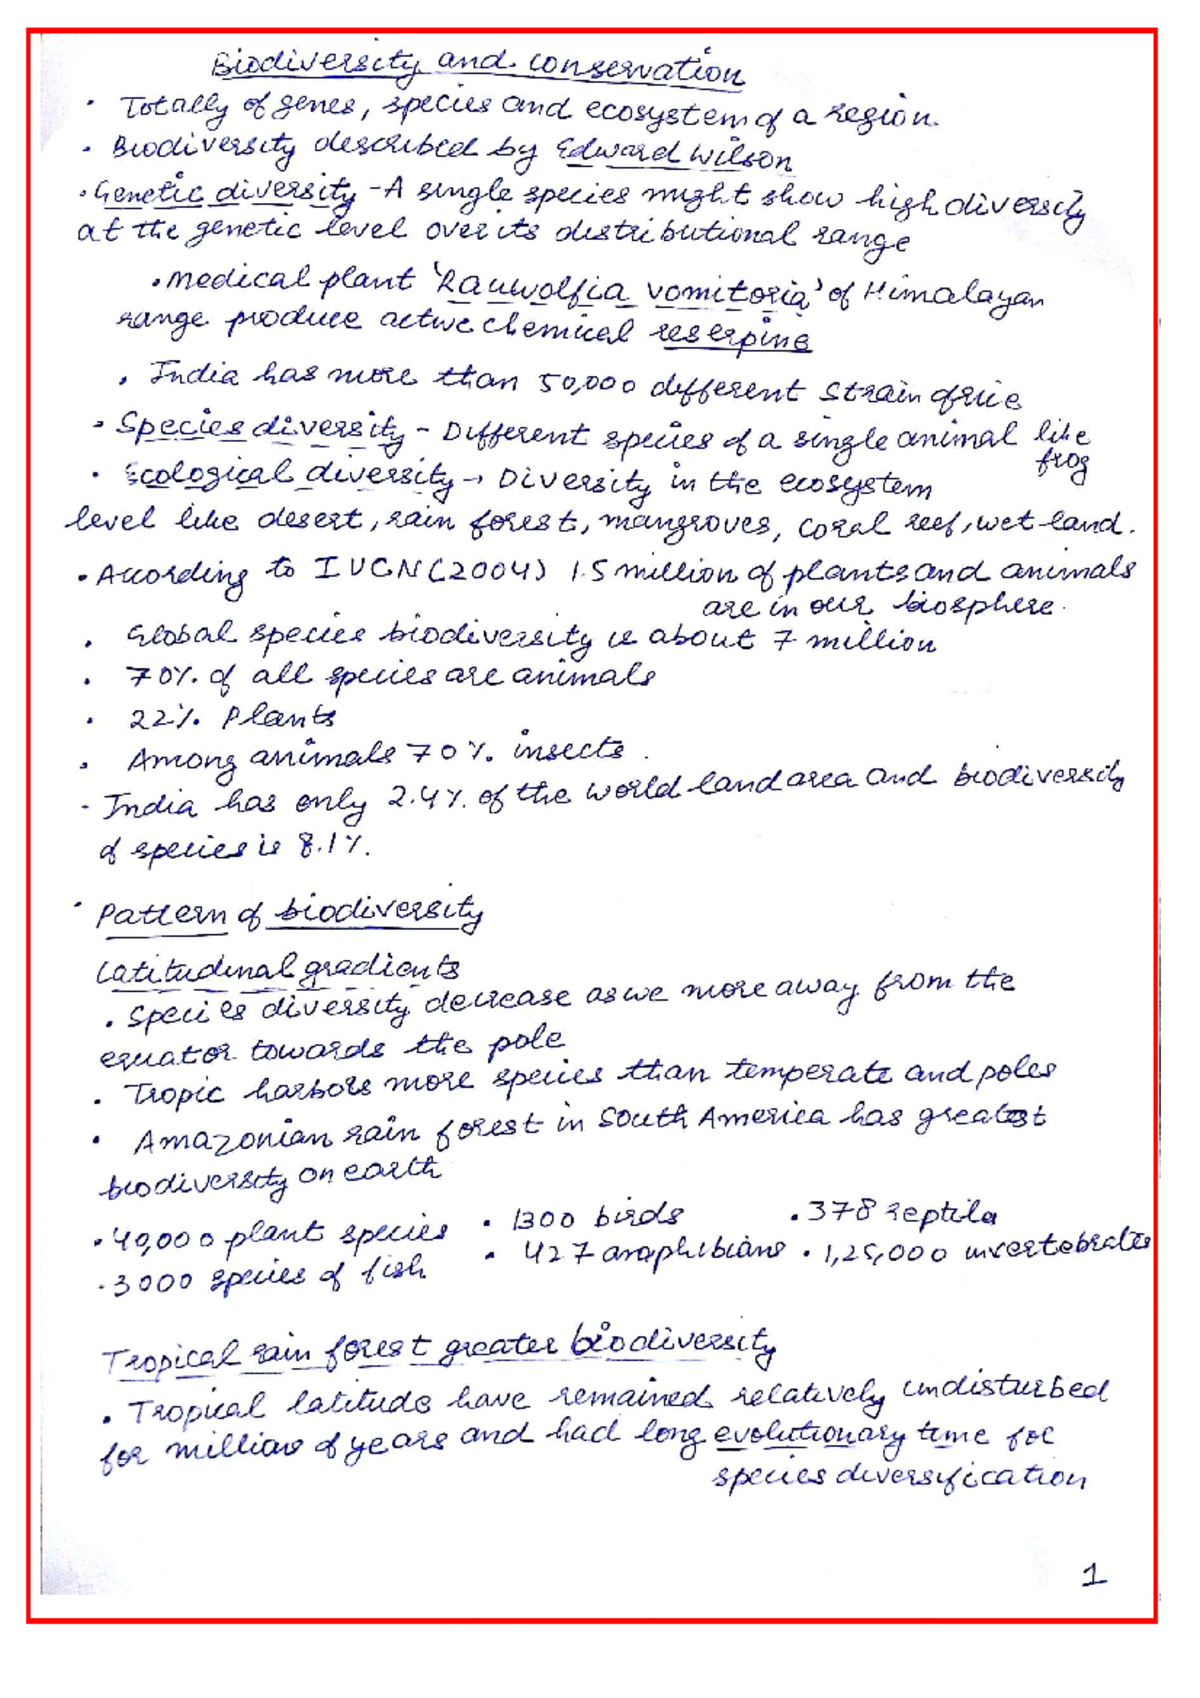 Biodiversity and conservation
• Totally of genes, species and ecosystem of a region.
• Biodiversity described by Edward Wilson
• Genetic diversity - A single species might show high diversity
at the genetic level over its distributional range
• Medical plant 'Rauwolfia vomitoria' of Himalayan
range produce active chemical reserpine
• India has more than 50,000 different strain of rice
• Species diversity - Different species of a single animal like
frog
• Ecological diversity → Diversity in the ecosystem
level like desert, rain forest, mangroves, coral reef, wet land.
• According to IUCN (2004) 1.5 million of plants and animals
are in our biosphere.
• Global species biodiversity is about 7 million
• 70% of all species are animals
• 22% Plants
• Among animals 70% insects.
- India has only 2.4% of the world land area and biodiversity
of species is 8.1%.
• Pattern of biodiversity
Latitudinal gradients
• Species diversity decrease as we more away from the
equator towards the pole
• Tropic harbors more species than temperate and poles
• Amazonian rain forest in South America has greatest
biodiversity on earth
• 40,000 plant species • 1300 birds • 378 reptila
• 3000 species of fish • 427 amphibians • 1,25,000 invertebrates
Tropical rain forest greater biodiversity
• Tropical latitude have remained relatively undisturbed
for millions of years and had long evolutionary time for
species diversification
1